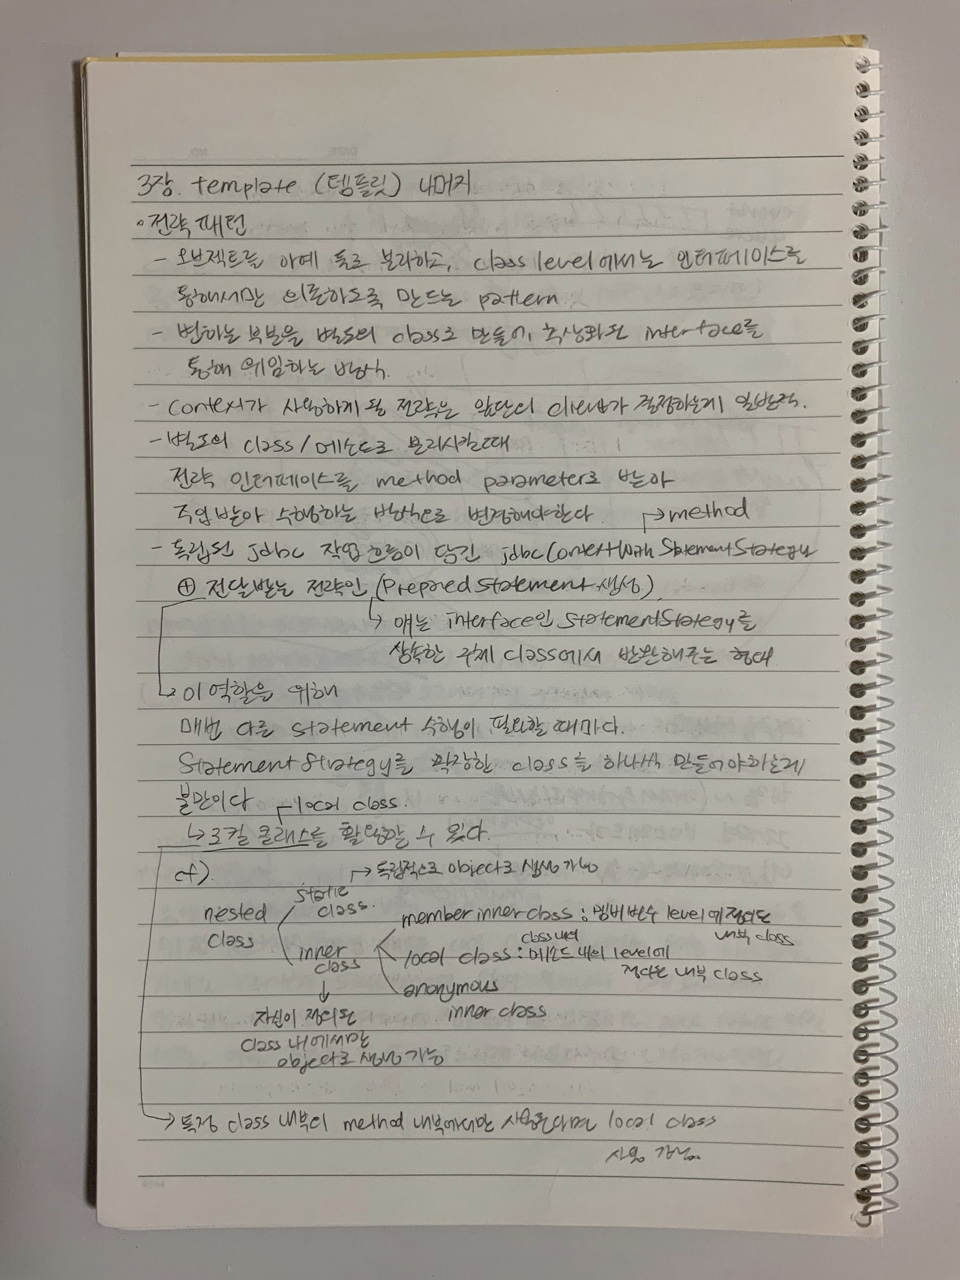 3장. template (템플릿) 나머지
• 전략 패턴
- 오브젝트를 아예 둘로 분리하고, class level에서는 인터페이스를
통해서만 의존하도록 만드는 pattern
- 변하는 부분을 별도의 class로 만들어, 추상화된 interface를
통해 위임하는 방식.
- Context가 사용하게 될 전략은 앞단의 client가 결정하는게 일반적.
- 별도의 class/메소드로 분리시킬때
전략 인터페이스를 method parameter로 받아
주입 받아 수행하는 방식으로 변경해야한다
→ method
- 독립된 jdbc 작업 흐름이 담긴 jdbcContextWithStatementStrategy
⊕ 전달받는 전략인 (PreparedStatement 생성)
↳ 얘는 interface인 StatementStrategy를
상속한 구체 class에서 반환해주는 형태
↳ 이 역할을 위해
매번 다른 statement 수행이 필요할 때마다.
StatementStrategy를 확장한 class를 하나씩 만들어야하는게
불만이다
→ local class.
↳ 로컬 클래스를 활용할 수 있다.
cf).
→ 독립적으로 object로 생성 가능
nested class
static class.
inner class
member inner class : 멤버 변수 level에 정의된
내부 class
local class : class 내의 메소드 내의 level에
정의된 내부 class
anonymous
inner class
↓
자신이 정의된
class 내에서만
object로 생성 가능
→ 특정 class 내부의 method 내부에서만 사용된다면 local class
사용 가능.